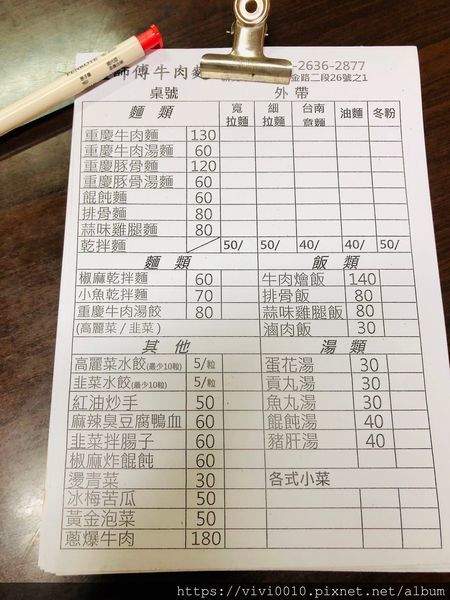 師傅牛肉麵 -2636-2877
金路二段26號之1
桌號 外帶
麵類 寬拉麵 細拉麵 台南意麵 油麵 冬粉
重慶牛肉麵 130
重慶牛肉湯麵 60
重慶豚骨麵 120
重慶豚骨湯麵 60
餛飩麵 60
排骨麵 80
蒜味雞腿麵 80
乾拌麵 50/ 50/ 40/ 40/ 50/
麵類 飯類
椒麻乾拌麵 60 牛肉燴飯 140
小魚乾拌麵 70 排骨飯 80
重慶牛肉湯餃 80 蒜味雞腿飯 80
(高麗菜/韭菜) 滷肉飯 30
其他 湯類
高麗菜水餃(最少10粒) 5/粒 蛋花湯 30
韭菜水餃(最少10粒) 5/粒 貢丸湯 30
紅油炒手 50 魚丸湯 30
麻辣臭豆腐鴨血 60 餛飩湯 40
韭菜拌腸子 60 豬肝湯 40
椒麻炸餛飩 60
燙青菜 30 各式小菜
冰梅苦瓜 50
黃金泡菜 50
蔥爆牛肉 180
https://vivi0010.pixnet.net/album